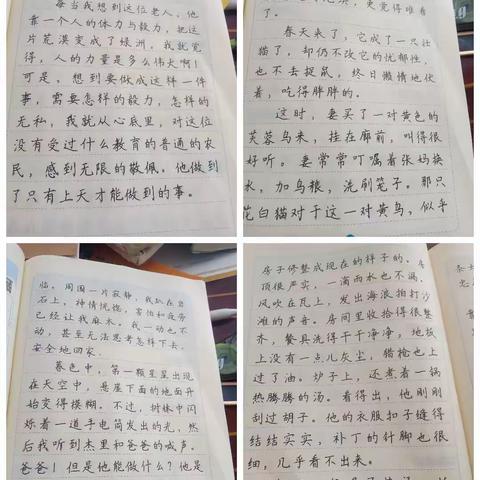 每当我想到这位老人，他
靠一个人的体力与毅力，把这
片荒漠变成了绿洲，我就觉
得，人的力量是多么伟大啊！
可是，想到要做成这样一件
事，需要怎样的毅力，怎样的
无私，我就从心底里，对这位
没有受过什么教育的普通的农
民，感到无限的敬佩。他做到
了只有上天才能做到的事。
更觉得难看
了。
春天来了，它成了一只壮
猫了，却仍不改它的忧郁性，
也不去捉鼠，终日懒惰地伏
着，吃得胖胖的。
这时，妻买了一对黄色的
芙蓉鸟来，挂在廊前，叫得很
好听。妻常常叮嘱着张妈换
水，加鸟粮，洗刷笼子。那只
花白猫对于这一对黄鸟，似乎
临。周围一片寂静，我趴在岩
石上，神情恍惚，害怕和疲劳
已经让我麻木。我一动也不
动，甚至无法思考怎样下去，
安全地回家。
暮色中，第一颗星星出现
在天空中，悬崖下面的地面开
始变得模糊。不过，树林中闪
烁着一道手电筒发出的光，然
后我听到杰里和爸爸的喊声。
爸爸！但是他能做什么？他是
房子修整成现在的样子的。房
顶很严实，一滴雨水也不漏。
风吹在瓦上，发出海浪拍打沙
滩的声音。房间里收拾得很整
齐，餐具洗得干干净净，地板
上没有一点儿灰尘，猎枪也上
过了油。炉子上，还煮着一锅
热腾腾的汤。看得出，他刚刚
刮过胡子。他的衣服扣子缝得
结结实实，补丁的针脚也很
细，几乎看不出来。